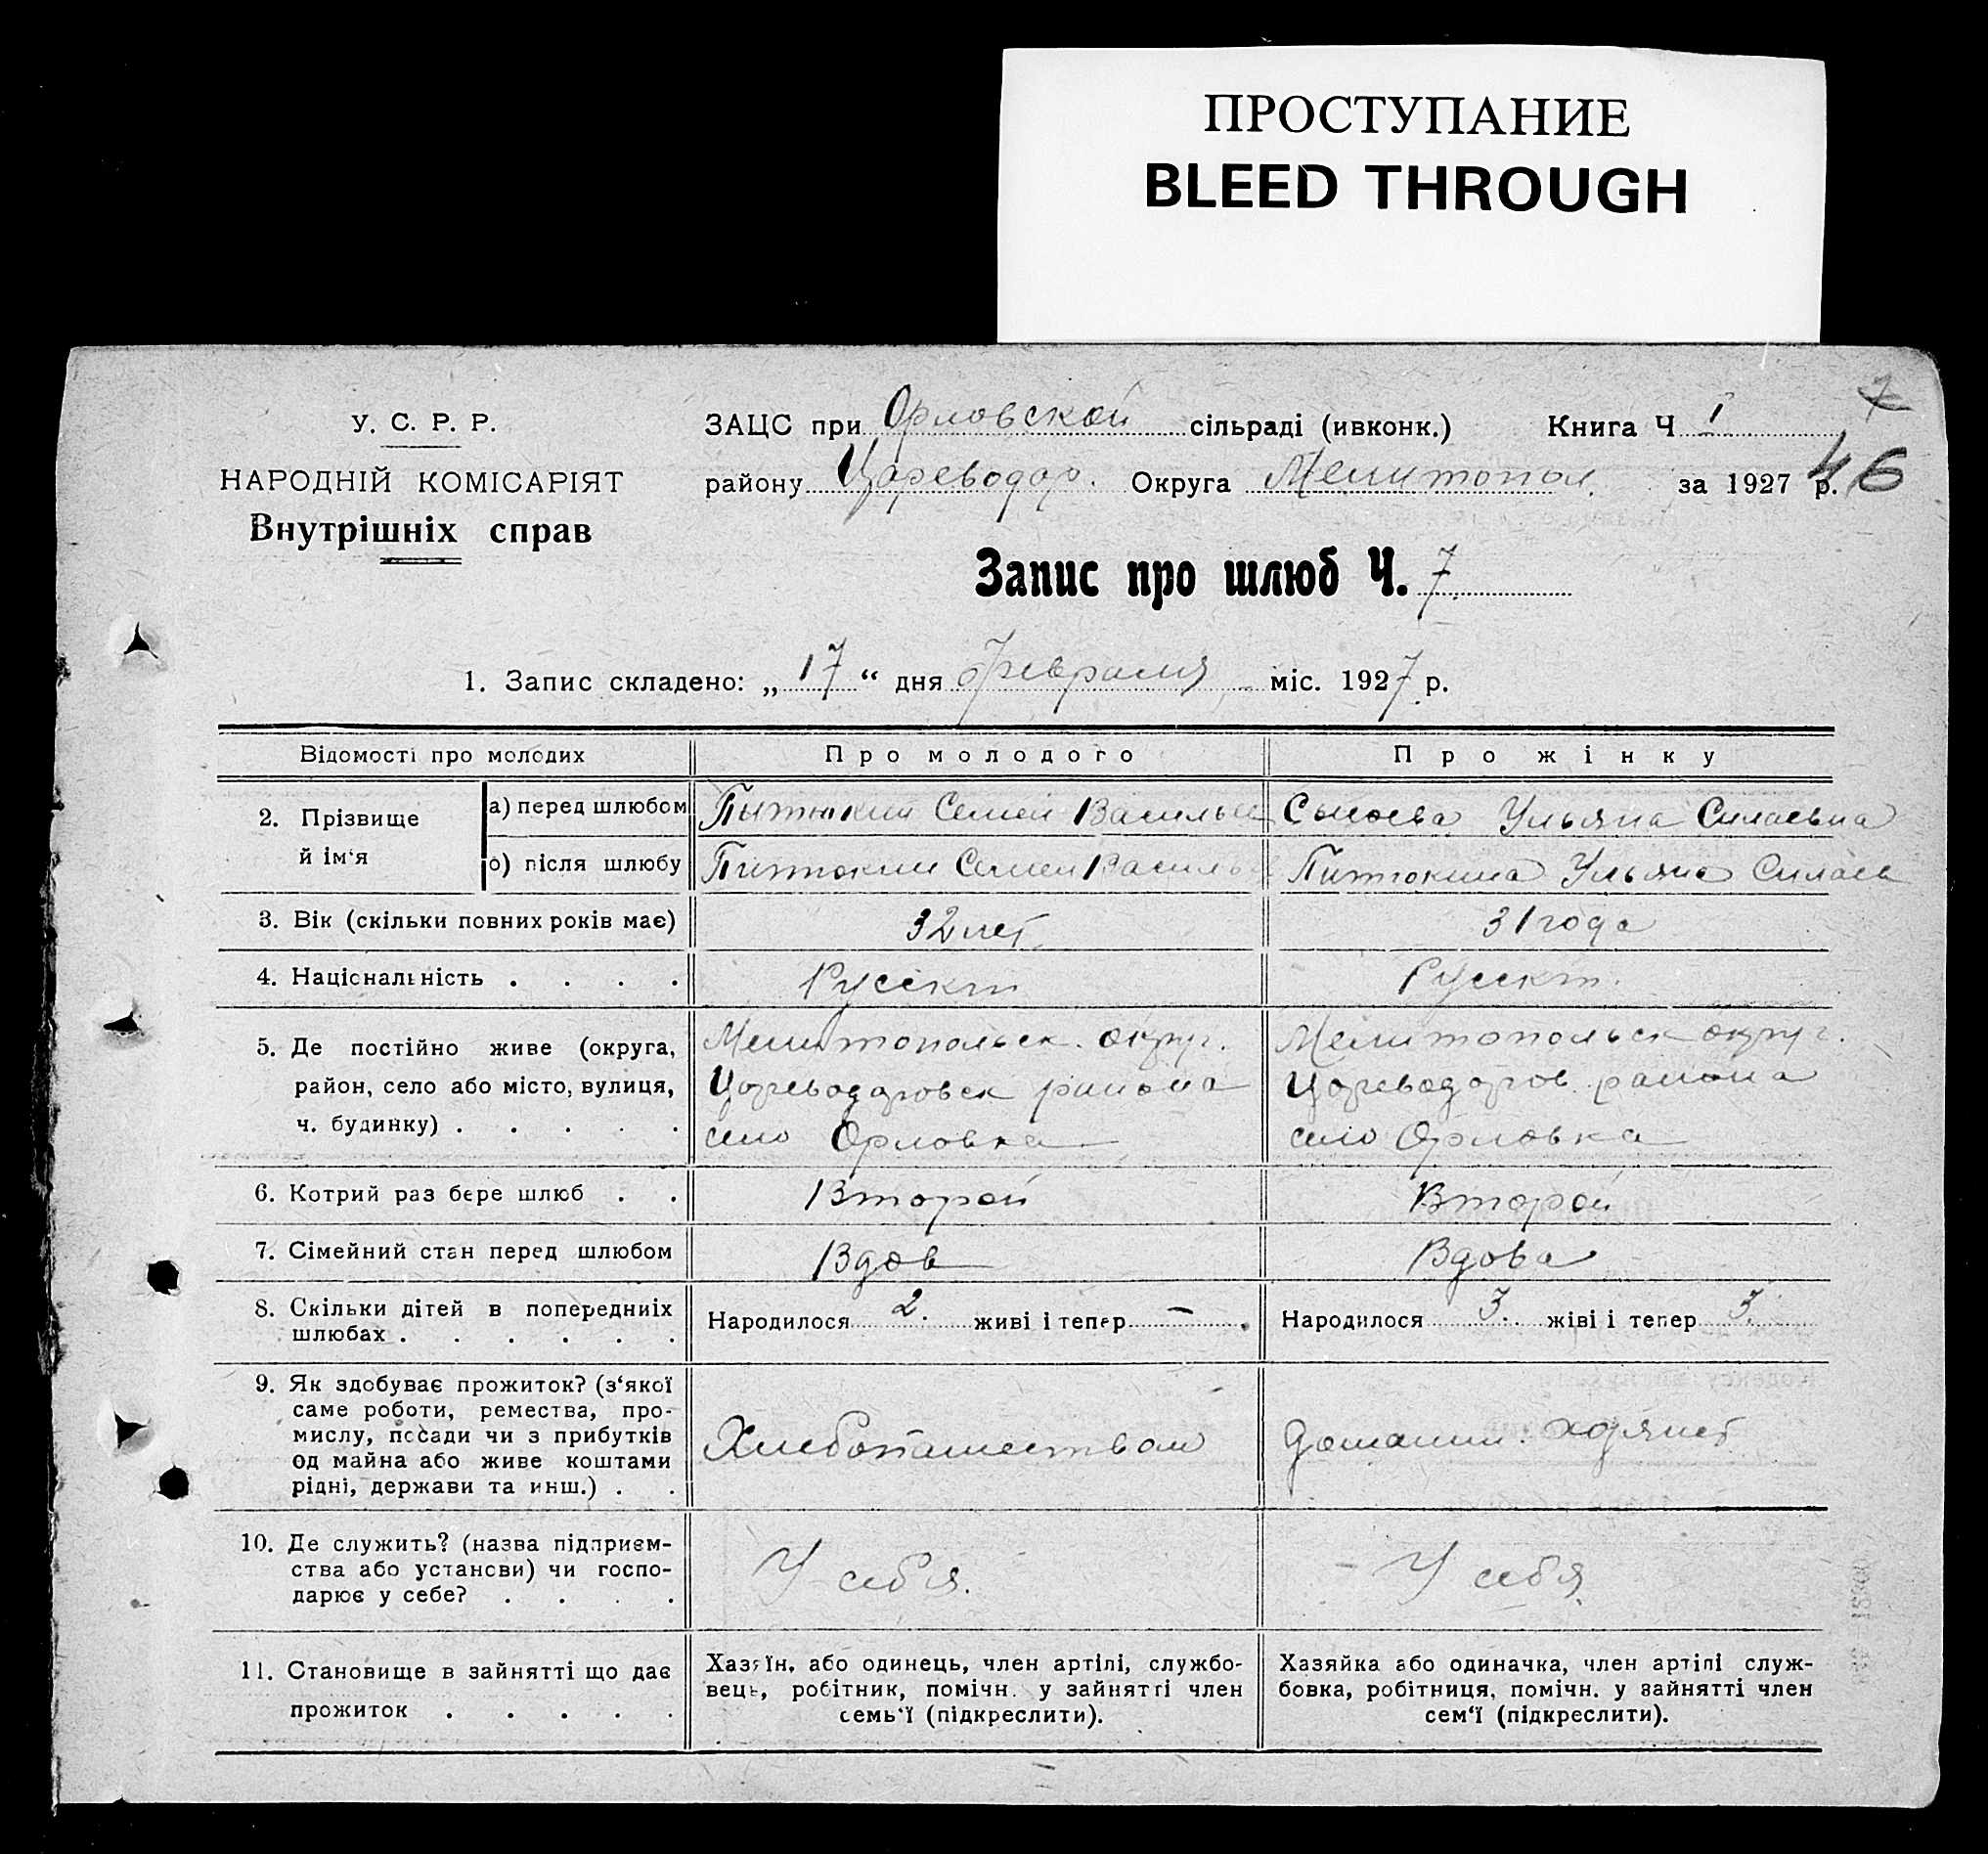 ПРОСТУПАНИЕ
BLEED THROUGH
У. С. Р. Р.
НАРОДНІЙ КОМІСАРІЯТ
Внутрішніх справ
ЗАЦС при Орловской сільраді (ивконк.) Книга Ч 1
7
району Цареводар. Округа Мелитопол. за 1927 р. 46
Запис про шлюб Ч. 7
1. Запис складено: „17“ дня февраля міс. 1927 р.
Відомості про молодих Про молодого Про жінку
2. Прізвище й ім‘я
а) перед шлюбом Пытюкин Семен Василье Сысоева Ульяна Силаевна
б) після шлюбу Питюкин Семен Василье Питюкина Ульяна Силаев
3. Вік (скільки повних років має) 32 лет 31 года
4. Національність . . . . Русскт Русскт.
5. Де постійно живе (округа, Мелитопольск. округ. Мелитопольск округ.
район, село або місто, вулиця, Цареводаровск района Цареводаров. района
ч. будинку) . . . . . село Орловка село Орловка
6. Котрий раз бере шлюб . . Второй Второй
7. Сімейний стан перед шлюбом Вдов Вдова
8. Скільки дітей в попередниіх
шлюбах . . . . . .
Народилося 2. живі і тепер — . Народилося 3. жіві і тепер 3.
9. Як здобуває прожиток? (з‘якої
саме роботи, ремества, про-
мислу, посади чи з прибутків
од майна або живе коштами
рідні, держави та инш.) . .
Хлебопашеством домашн. хозяист
10. Де служить? (назва підприєм-
ства або установи) чи госпо-
дарює у себе? . . . .
У себя. У себя
11. Становище в зайнятті що дає
прожиток . . . . .
Хазяїн, або одинець, член артілі, службо-
вець, робітник, помічн. у зайнятті член
семь‘ї (підкреслити).
Хазяйка або одиначка, член артілі служ-
бовка, робітниця, помічн. у зайнятті член
сем‘ї (підкреслити).